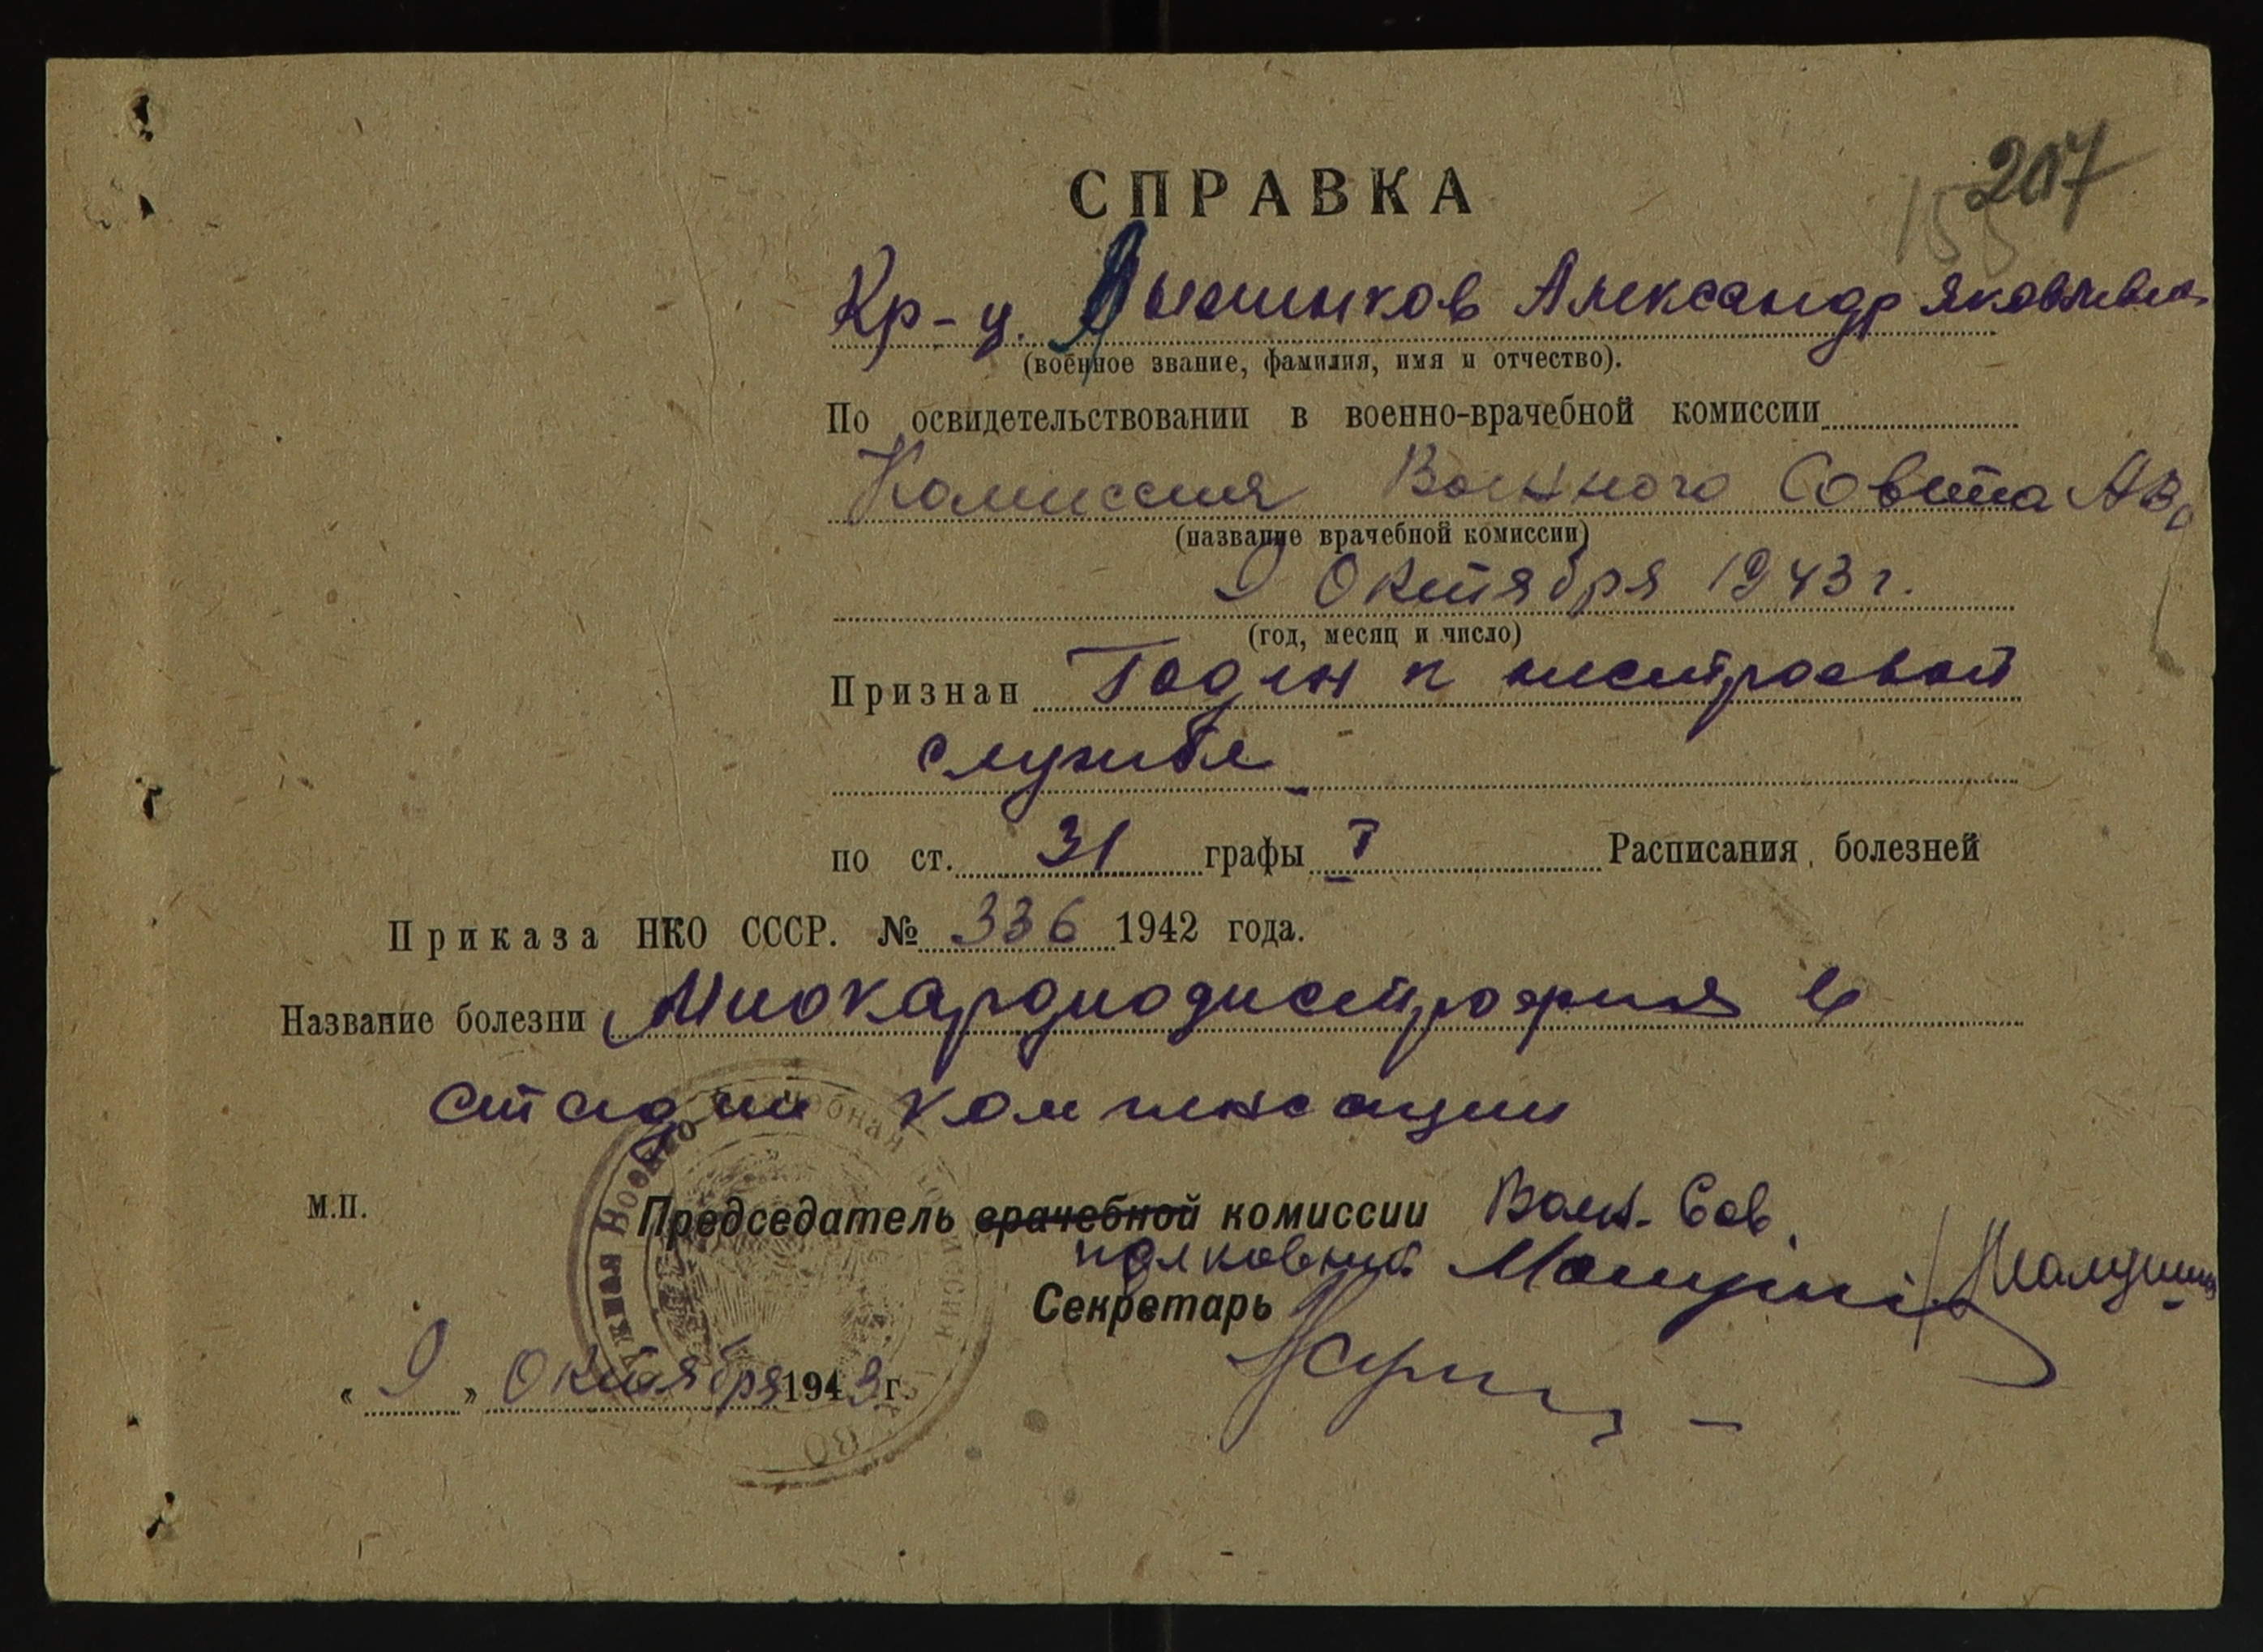 207
155
СПРАВКА
Кр-ц. Александр Яковлевич
(военное звание, фамилия, имя и отчество).
По освидетельствовании в военно-врачебной комиссии
Комиссия Военного Совета АВО
(название врачебной комиссии)
9 Октября 1943 г.
(год, месяц и число)
Признан Годен к нестроевой
службе
по ст. 31 графы I Расписания болезней
Приказа НКО СССР. № 336 1942 года.
Название болезни Миокардиодистрофия в
стадии компенсации
М.П.
Председатель врачебной комиссии Воен. Сов.
полковник
Секретарь
« 9 » Октября 1943 г.